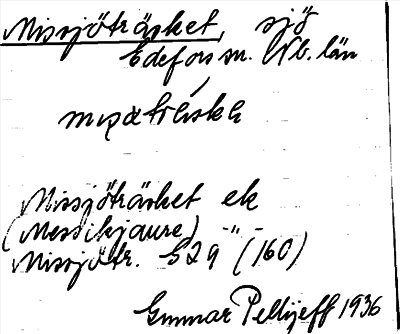 Missjöträsket, sjö
Edefors sn. Nb. län
Missjöträsket ek
(Messikjaure) -"-
Missjötr. S29 (160)
Gunnar Pellijeff 1936